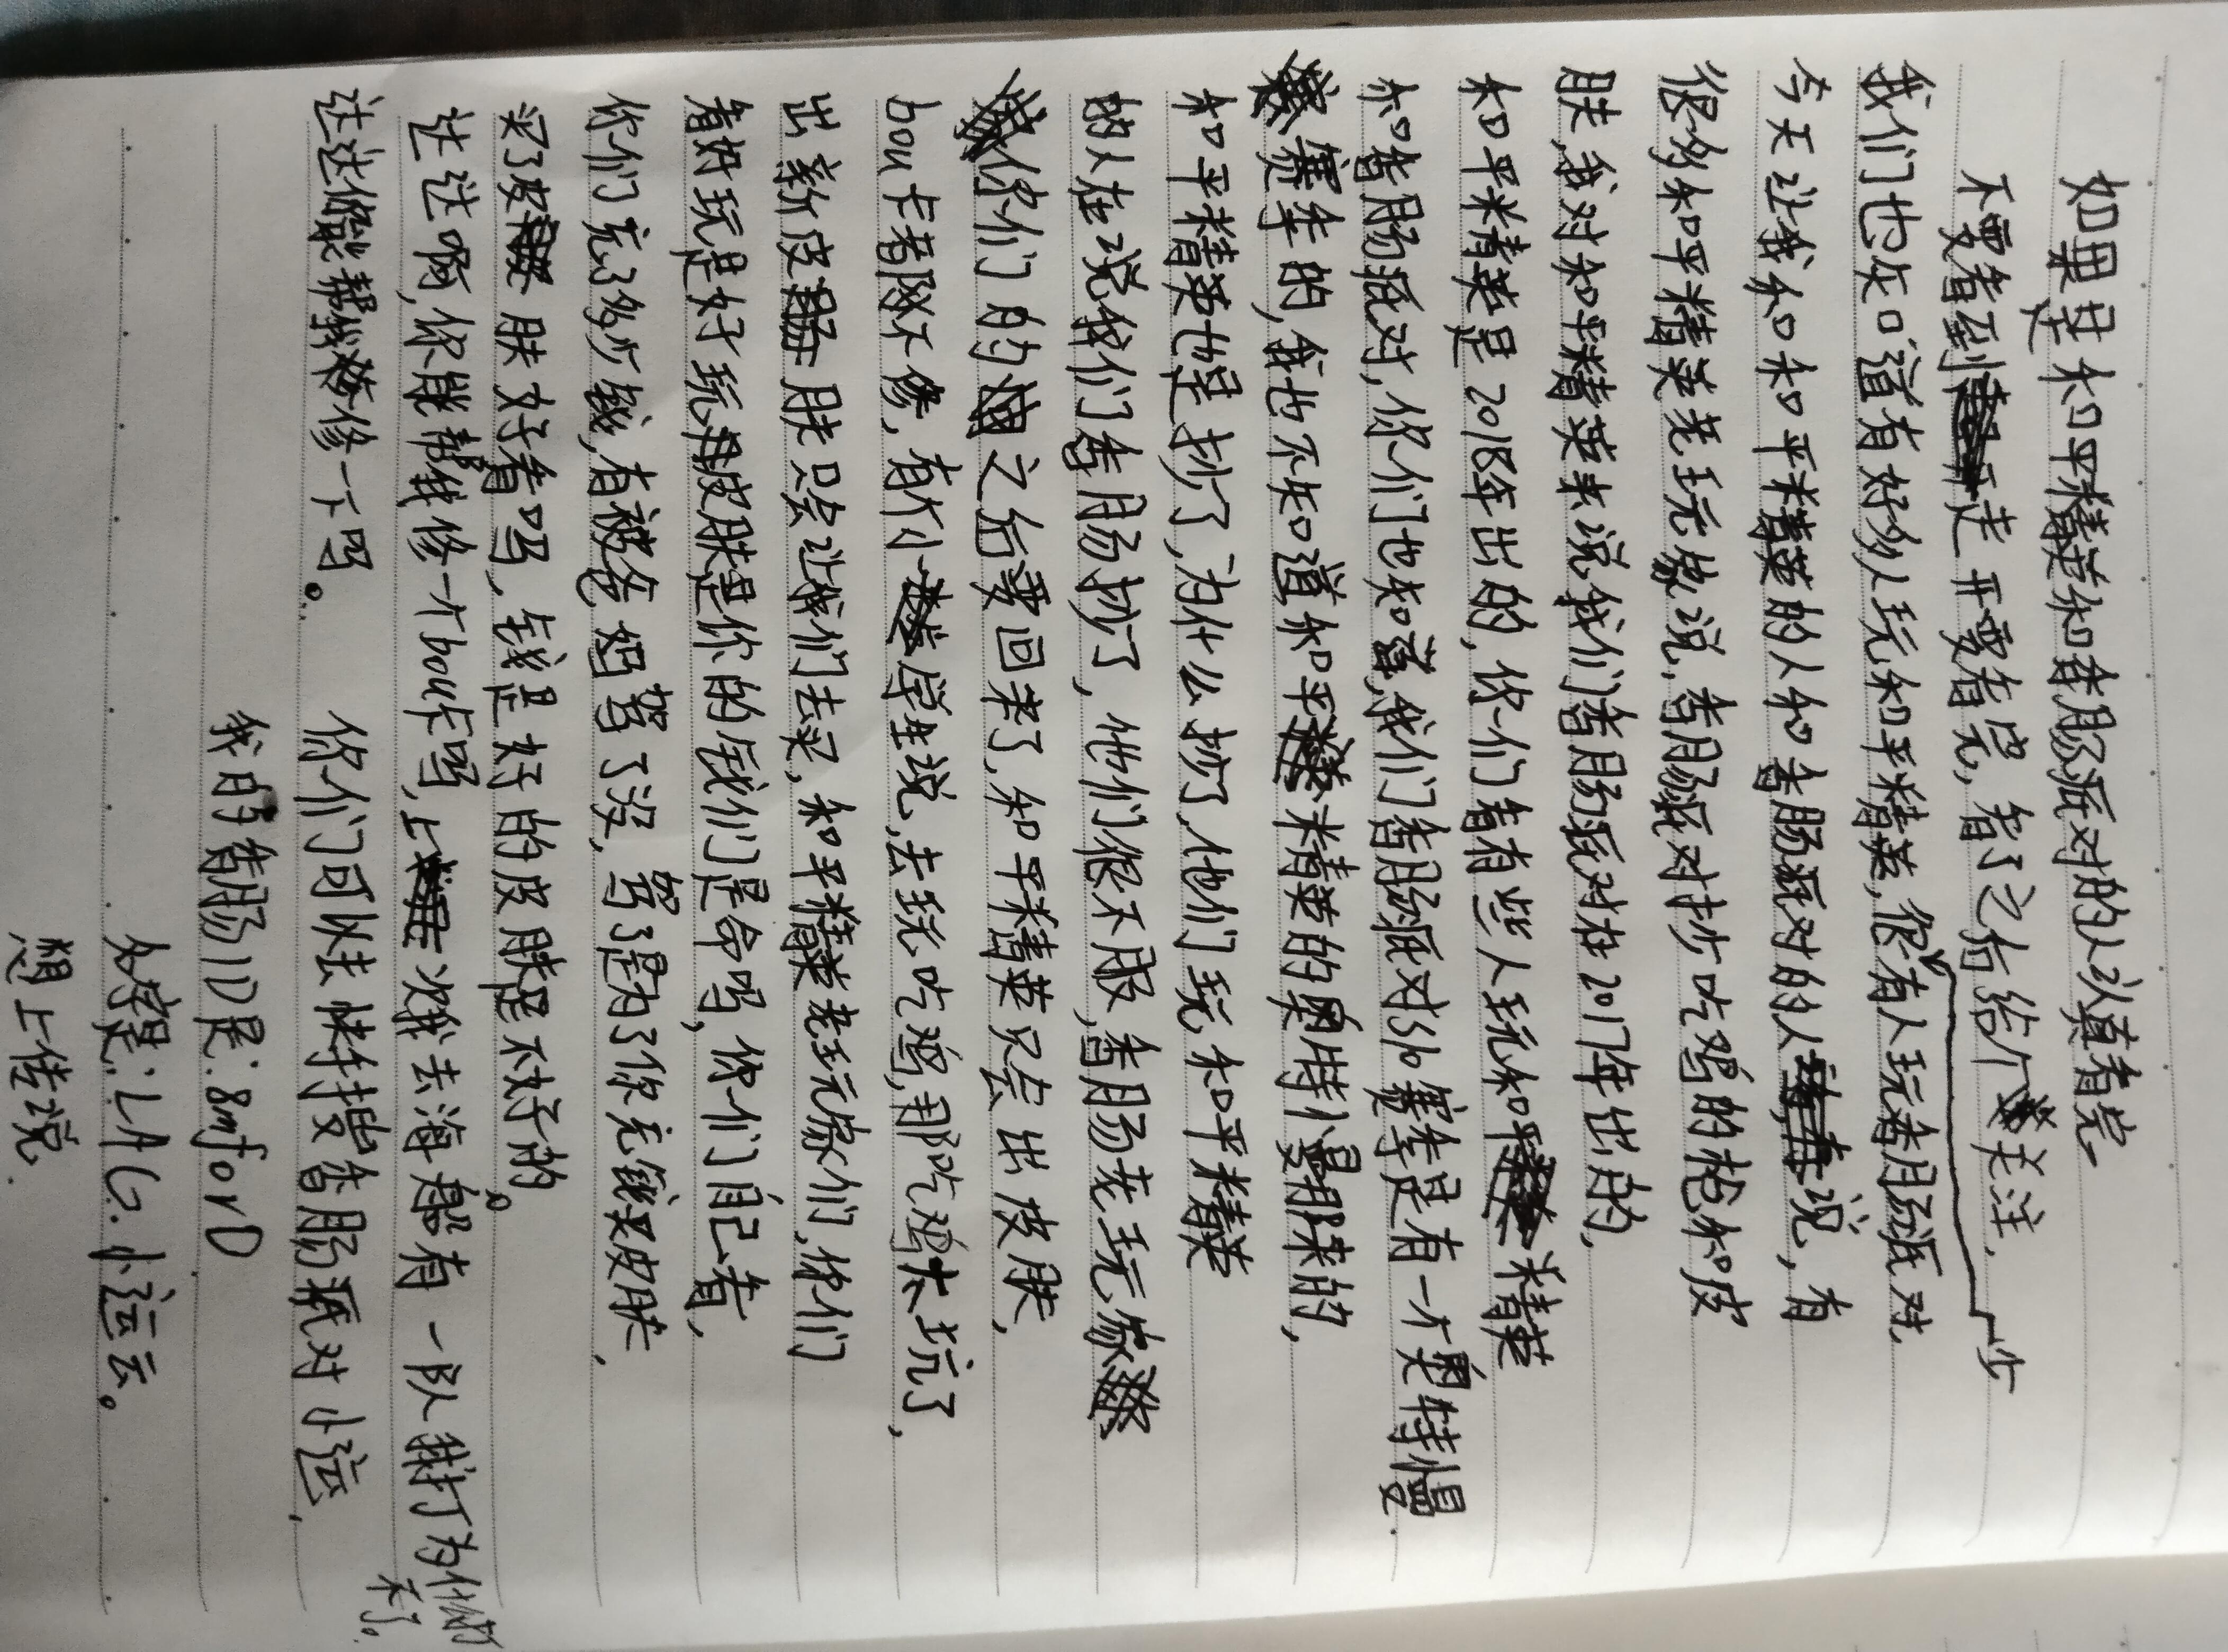 如果是和平精英和香肠派对的人认真看完
不要看到走开要看完，看了之后给个关注，
我们也知道有好多人玩和平精英，很少有人玩香肠派对，
今天让我和和平精英的人和香肠派对的人说，有
很多和平精英老玩家说，香肠派对抄吃鸡的枪和皮
肤，我对和平精英来说我们香肠派对在2017年出的，
和平精英是2018年出的，你们看有些人玩和精英
和香肠派对，你们也知道，我们香肠派对S10赛车是有一个奥特曼
赛车的，我也不知道和平精英的奥特曼那来的，
和平精英也是抄了，为什么抄了，他们玩和平精英
的人在说我们香肠抄了，他们很不服，香肠老玩家
你们的之后要回来了，和平精英只会出皮肤，
bou卡着队不修，有个小学生说，去玩吃鸡，那吃鸡太坑了，
出新皮肤只会让我们去买，和平精英老玩家们，你们
着好玩是好玩用皮肤是你的钱们是命吗，你们自己看，
你们充了多少钱，有被爸妈骂了没，骂了是为了你充钱买皮肤，
买了皮肤好看吗，钱是好的皮肤是不好的。
达达啊，你能帮我修一个bou卡吗，上次我去海岛有一队我打为什么
不了。
达达你能帮我修一下吗。
你们可以去快手搜香肠派对小运，
我的香肠ID是：8mforD
名字是：LAG.小运云。
想上传说